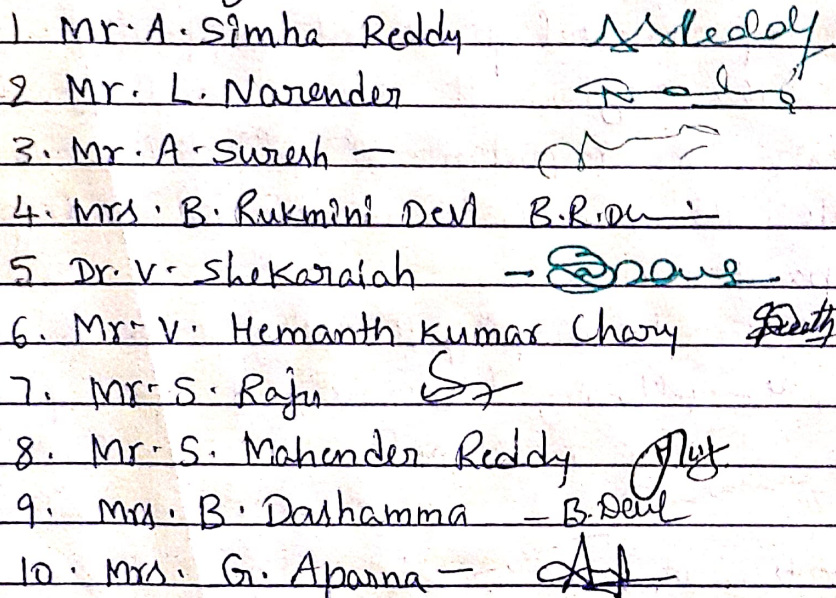 1 Mr. A. Simha Reddy ASReddy
2 Mr. L. Narender
3. Mr. A. Suresh —
4. Mrs. B. Rukmini Devi B.R.De
5 Dr. V. Shekaraiah -
6. Mr. V. Hemanth Kumar Chary
7. Mr. S. Raju
8. Mr. S. Mahender Reddy
9. Mrs. B. Dashamma - B.Devi
10. Mrs. G. Aparna —